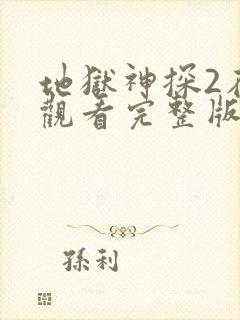 地獄神探2
觀看完整版
孫利